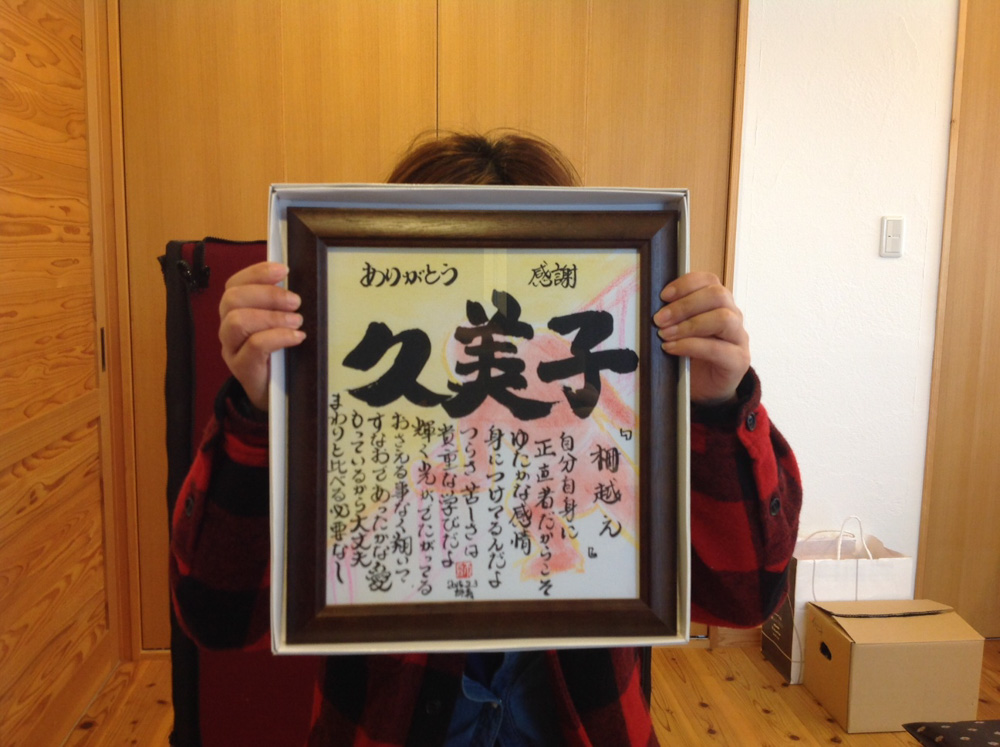 ありがとう
感謝
久美子
『柵越え』
自分自身に
正直者だからこそ
ゆたかな感情
身につけてるんだよ
つらさ苦しさは
貴重な学びだよ
輝く光がてたがってる
おさえる事なく翔いて
すなおであったかな愛
もっているから大丈夫
まわりと比べる必要なし